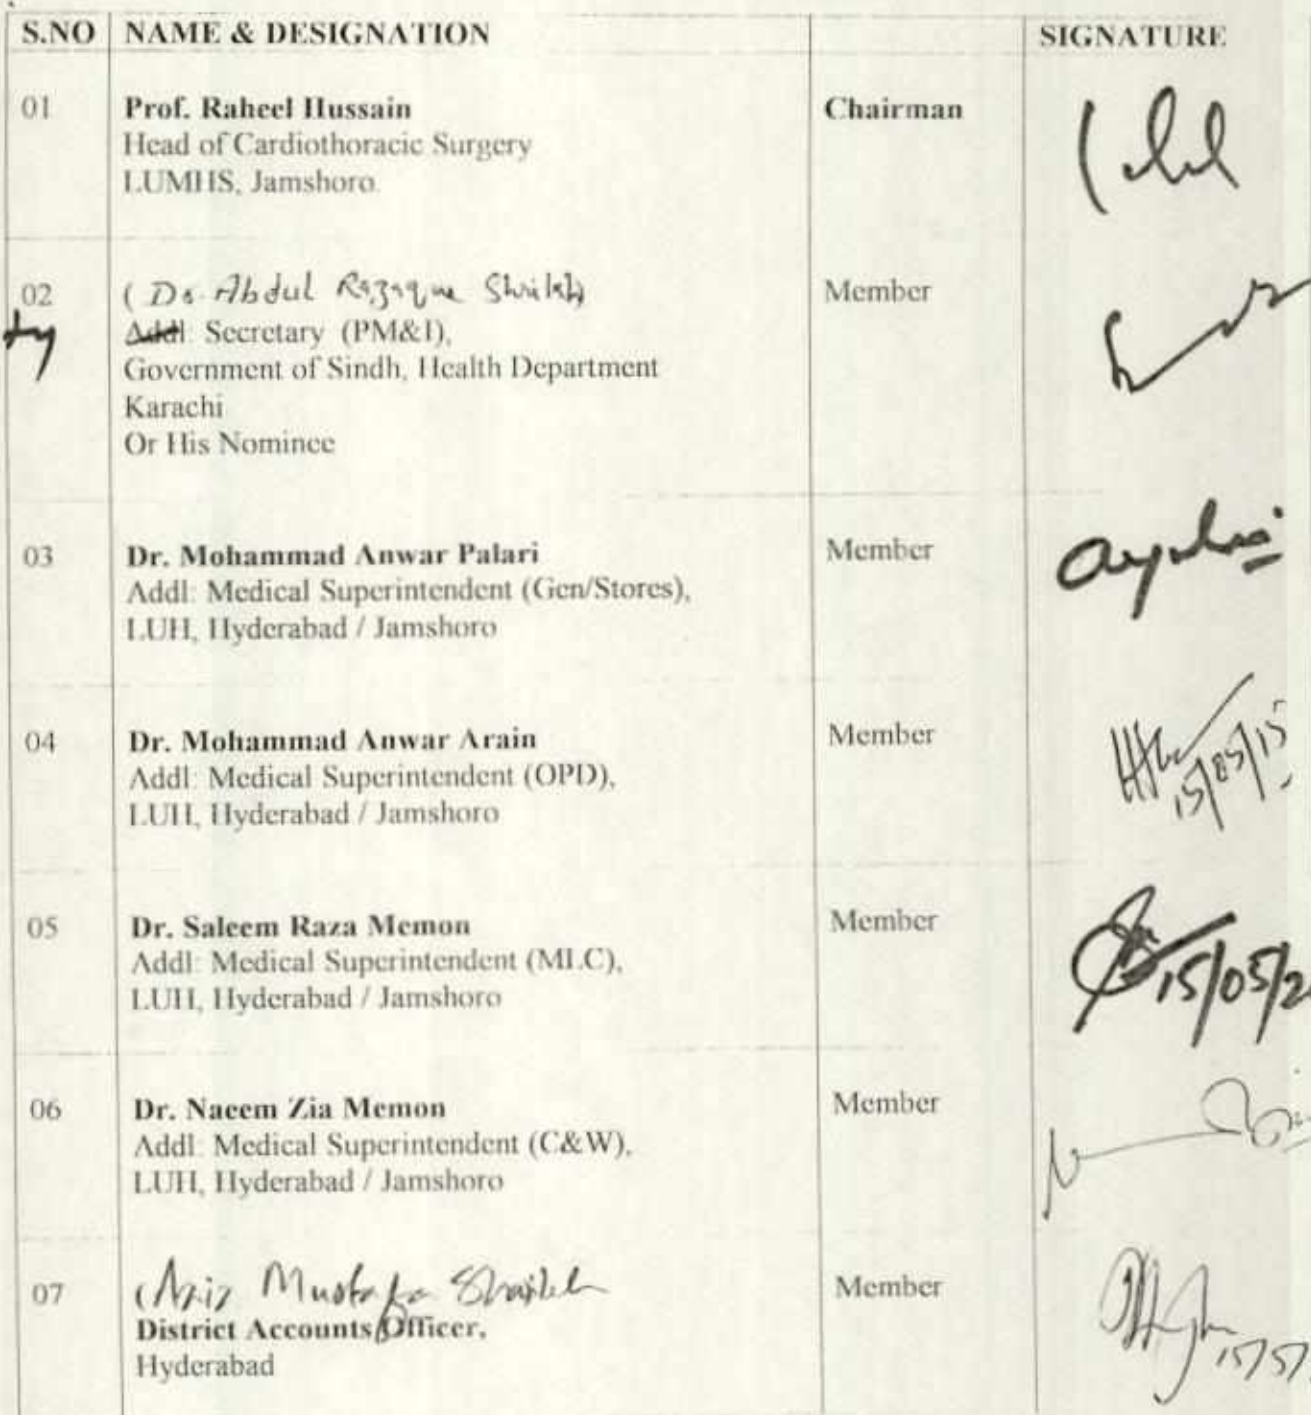 S.NO NAME & DESIGNATION SIGNATURE
01 Prof. Raheel Hussain Chairman
Head of Cardiothoracic Surgery
LUMHS, Jamshoro.
02 (Dr. Abdul Razzaque Shaikh) Member
Addl: Secretary (PM&I),
Government of Sindh, Health Department
Karachi
Or His Nominee
03 Dr. Mohammad Anwar Palari Member
Addl: Medical Superintendent (Gen/Stores),
LUH, Hyderabad / Jamshoro
04 Dr. Mohammad Anwar Arain Member
Addl: Medical Superintendent (OPD),
LUH, Hyderabad / Jamshoro
15/05/15
05 Dr. Saleem Raza Memon Member
Addl: Medical Superintendent (MLC),
LUH, Hyderabad / Jamshoro
15/05/2
06 Dr. Naeem Zia Memon Member
Addl: Medical Superintendent (C&W),
LUH, Hyderabad / Jamshoro
07 (Aziz Mustafa Shaikh Member
District Accounts Officer,
Hyderabad
15/5/